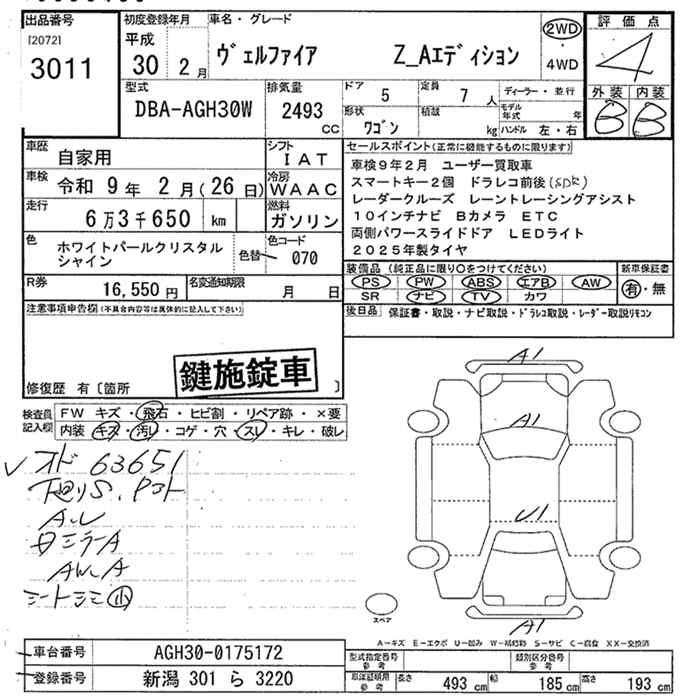 出品番号
[2072]
3011
初度登録年月
平成
30年 2月
車名・グレード
ヴェルファイア Z_Aエディション
2WD
・
4WD
評価点
4
外装 内装
B B
型式
DBA-AGH30W
排気量
2493
CC
ドア 5
定員 7人
形状 ワゴン
積載 kg
ディーラー・並行
モデル年式 年
ハンドル 左・右
車歴 自家用
シフト IAT
車検 令和 9年 2月(26日)
冷房 WAAC
走行 6万3千650 km
燃料 ガソリン
色 ホワイトパールクリスタル
シャイン
色替
カラーコード 070
R券 16,550円
名変通知期限 月 日
セールスポイント(正常に機能するものに限ります)
車検9年2月 ユーザー買取車
スマートキー2個 ドラレコ前後(SDR)
レーダークルーズ レーントレーシングアシスト
10インチナビ Bカメラ ETC
両側パワースライドドア LEDライト
2025年製タイヤ
装備品(純正品に限り○をつけてください)
PS PW ABS エアB AW
SR ナビ TV カワ
新車保証書
有・無
後日品 保証書・取説・ナビ取説・ドラレコ取説・レーダー取説リモコン
注意事項申告欄(不具合内容等は具体的に記入して下さい)
鍵施錠車
修復歴 有〔箇所 〕
検査員記入欄
FW キズ・飛石・ヒビ割・リペア跡・×要
内装 キズ・汚レ・コゲ・穴・スレ・キレ・破レ
オド 63651
下廻りS、Pコト
A.U
日ミラーA
AW.A
シートシミ小
A1
A1
U1
A1
スペア
A-キズ E-エクボ U-凹み W-補修跡 S-サビ C-腐食 XX-交換済
車台番号 AGH30-0175172
登録番号 新潟 301 ら 3220
型式指定番号 参考
類別区分番号 参考
車庫証明用 参考
長さ 493 cm
幅 185 cm
高さ 193 cm